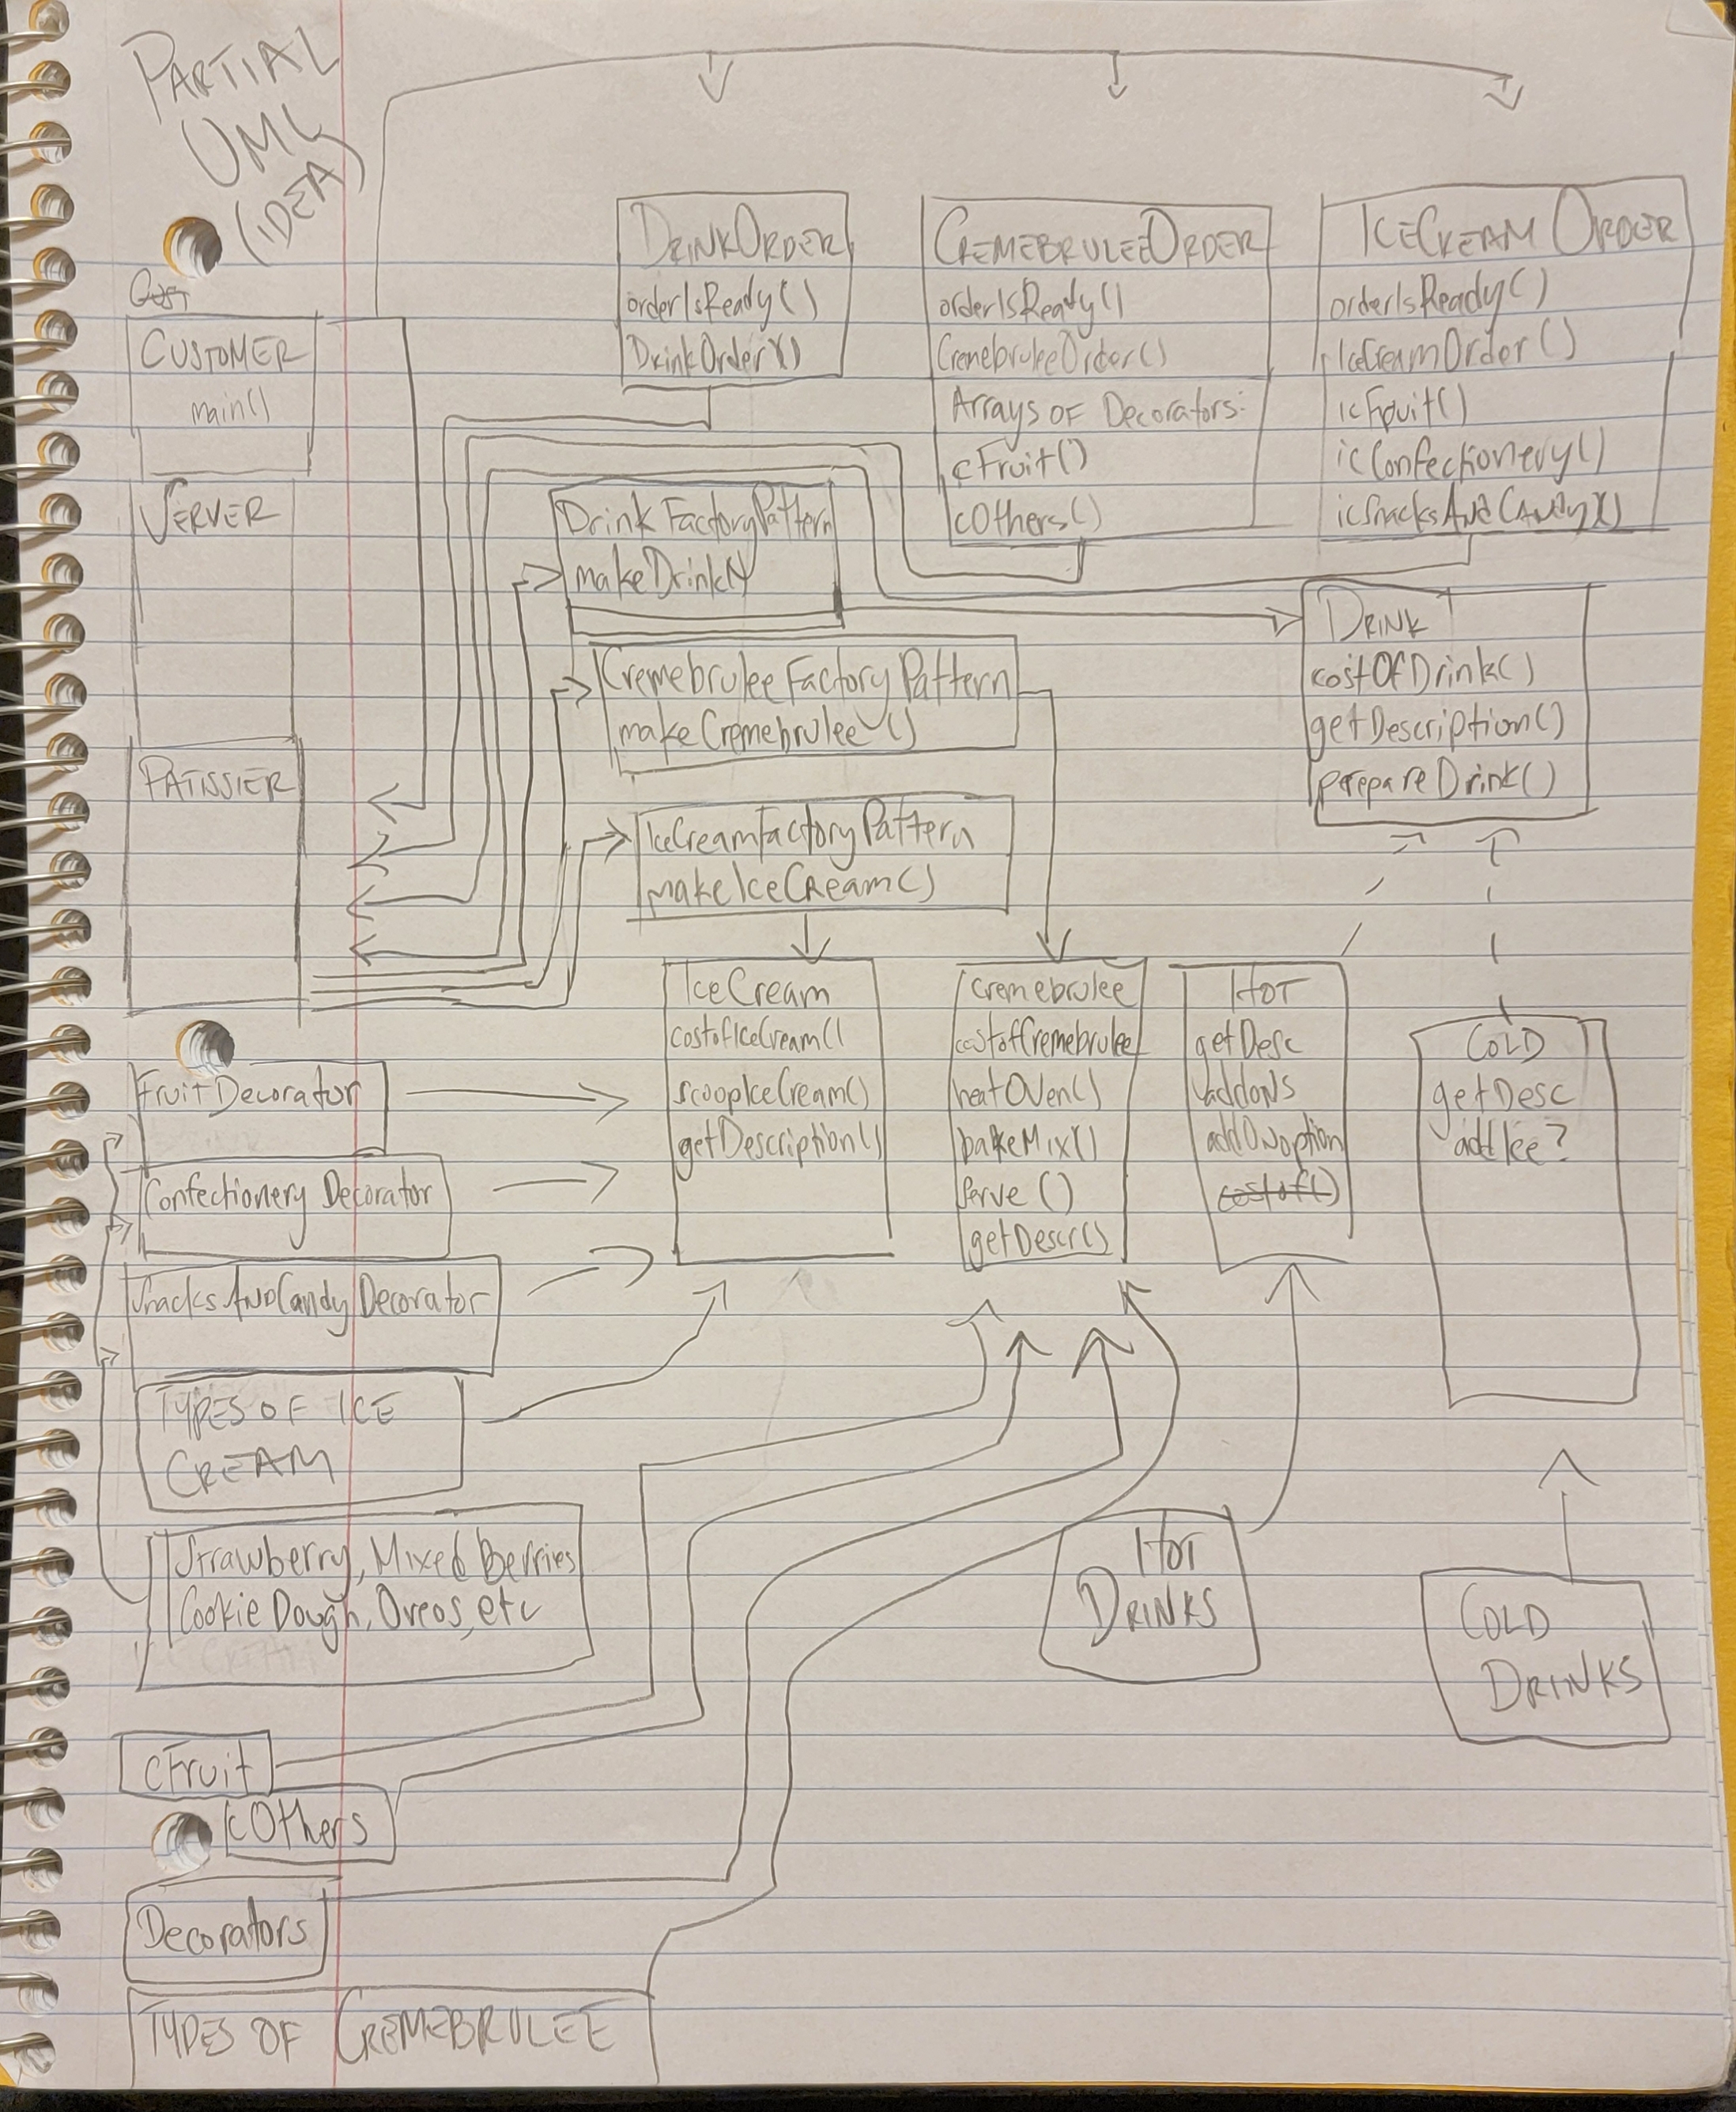 PARTIAL
UML
(IDEA)
Cust
CUSTOMER
main()
SERVER
PATISSIER
DRINKORDER
orderIsReady()
DrinkOrder()
CREMEBRULEEORDER
orderIsReady()
CremebruleeOrder()
Arrays OF Decorators:
cFruit()
cOthers()
ICECREAM ORDER
orderIsReady()
IceCreamOrder()
icFruit()
icConfectionery()
icSnacksAndCandy()
Drink FactoryPattern
makeDrink()
Cremebrulee Factory Pattern
make Cremebrulee()
IceCreamFactoryPattern
makeIceCream()
DRINK
costOfDrink()
getDescription()
perepareDrink()
IceCream
costofIceCream()
scoopIceCream()
getDescription()
Cremebrulee
costofCremebrulee
heatOven()
bakeMix()
serve()
getDescr()
HOT
getDesc
addons
addOnoption
costof()
COLD
getDesc
addIce?
FruitDecorator
Confectionery Decorator
SnacksAndCandy Decorator
TYPES OF ICE
CREAM
Strawberry, Mixed Berries
Cookie Dough, Oreos, etc
HOT
DRINKS
COLD
DRINKS
cFruit
cOthers
Decorators
TYPES OF CREMEBRULEE